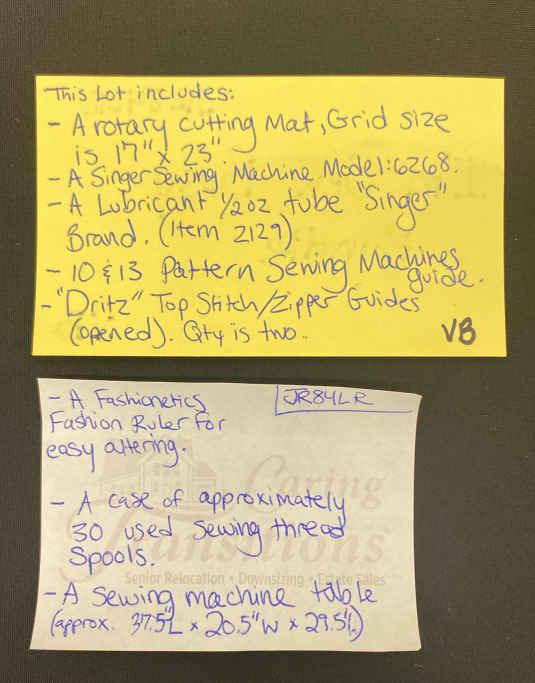 This Lot includes:
- A rotary cutting Mat, Grid size
is 17" x 23".
- A Singer Sewing Machine Model: 6268.
- A Lubricant 1/2 oz tube "Singer"
Brand. (Item 2129)
- 10 & 13 Pattern Sewing Machines
guide.
- "Dritz" Top Stitch/Zipper Guides
(opened). Qty is two.
VB
JR84LR
- A Fashionetics
Fashion Ruler for
easy altering.
- A case of approximately
30 used sewing thread
Spools.
Caring
Transitions
Senior Relocation • Downsizing • Estate Sales
- A Sewing machine table
(approx. 37.5"L x 20.5"W x 29.5"h)